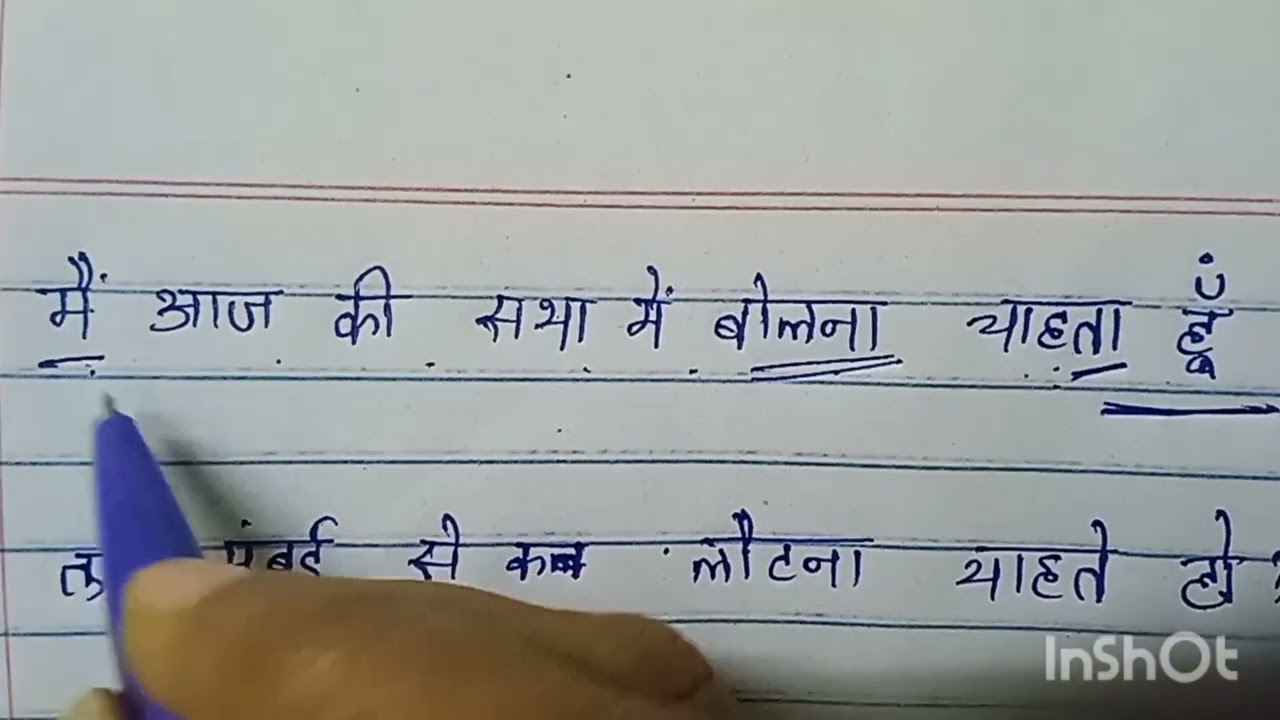 मैं आज की सभा में बोलना चाहता हूँ
से कब लौटना चाहते हो?
InShOt